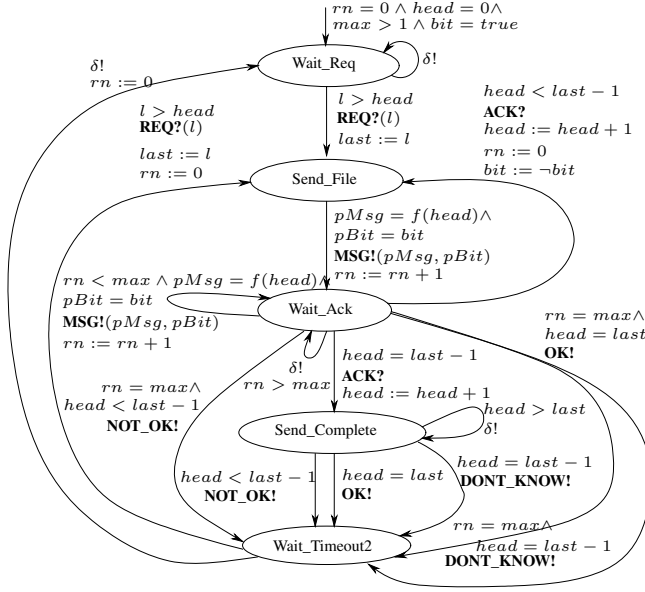 rn = 0 ∧ head = 0∧
max > 1 ∧ bit = true
Wait_Req
δ!
δ!
rn := 0
l > head
REQ?(l)
last := l
rn := 0
l > head
REQ?(l)
last := l
head < last − 1
ACK?
head := head + 1
rn := 0
bit := ¬bit
Send_File
pMsg = f(head)∧
pBit = bit
MSG!(pMsg, pBit)
rn := rn + 1
rn < max ∧ pMsg = f(head)∧
pBit = bit
MSG!(pMsg, pBit)
rn := rn + 1
Wait_Ack
rn = max∧
head = last
OK!
δ!
rn > max
head = last − 1
ACK?
head := head + 1
rn = max∧
head < last − 1
NOT_OK!
Send_Complete
head > last
δ!
head < last − 1
NOT_OK!
head = last
OK!
head = last − 1
DONT_KNOW!
rn = max∧
head = last − 1
DONT_KNOW!
Wait_Timeout2